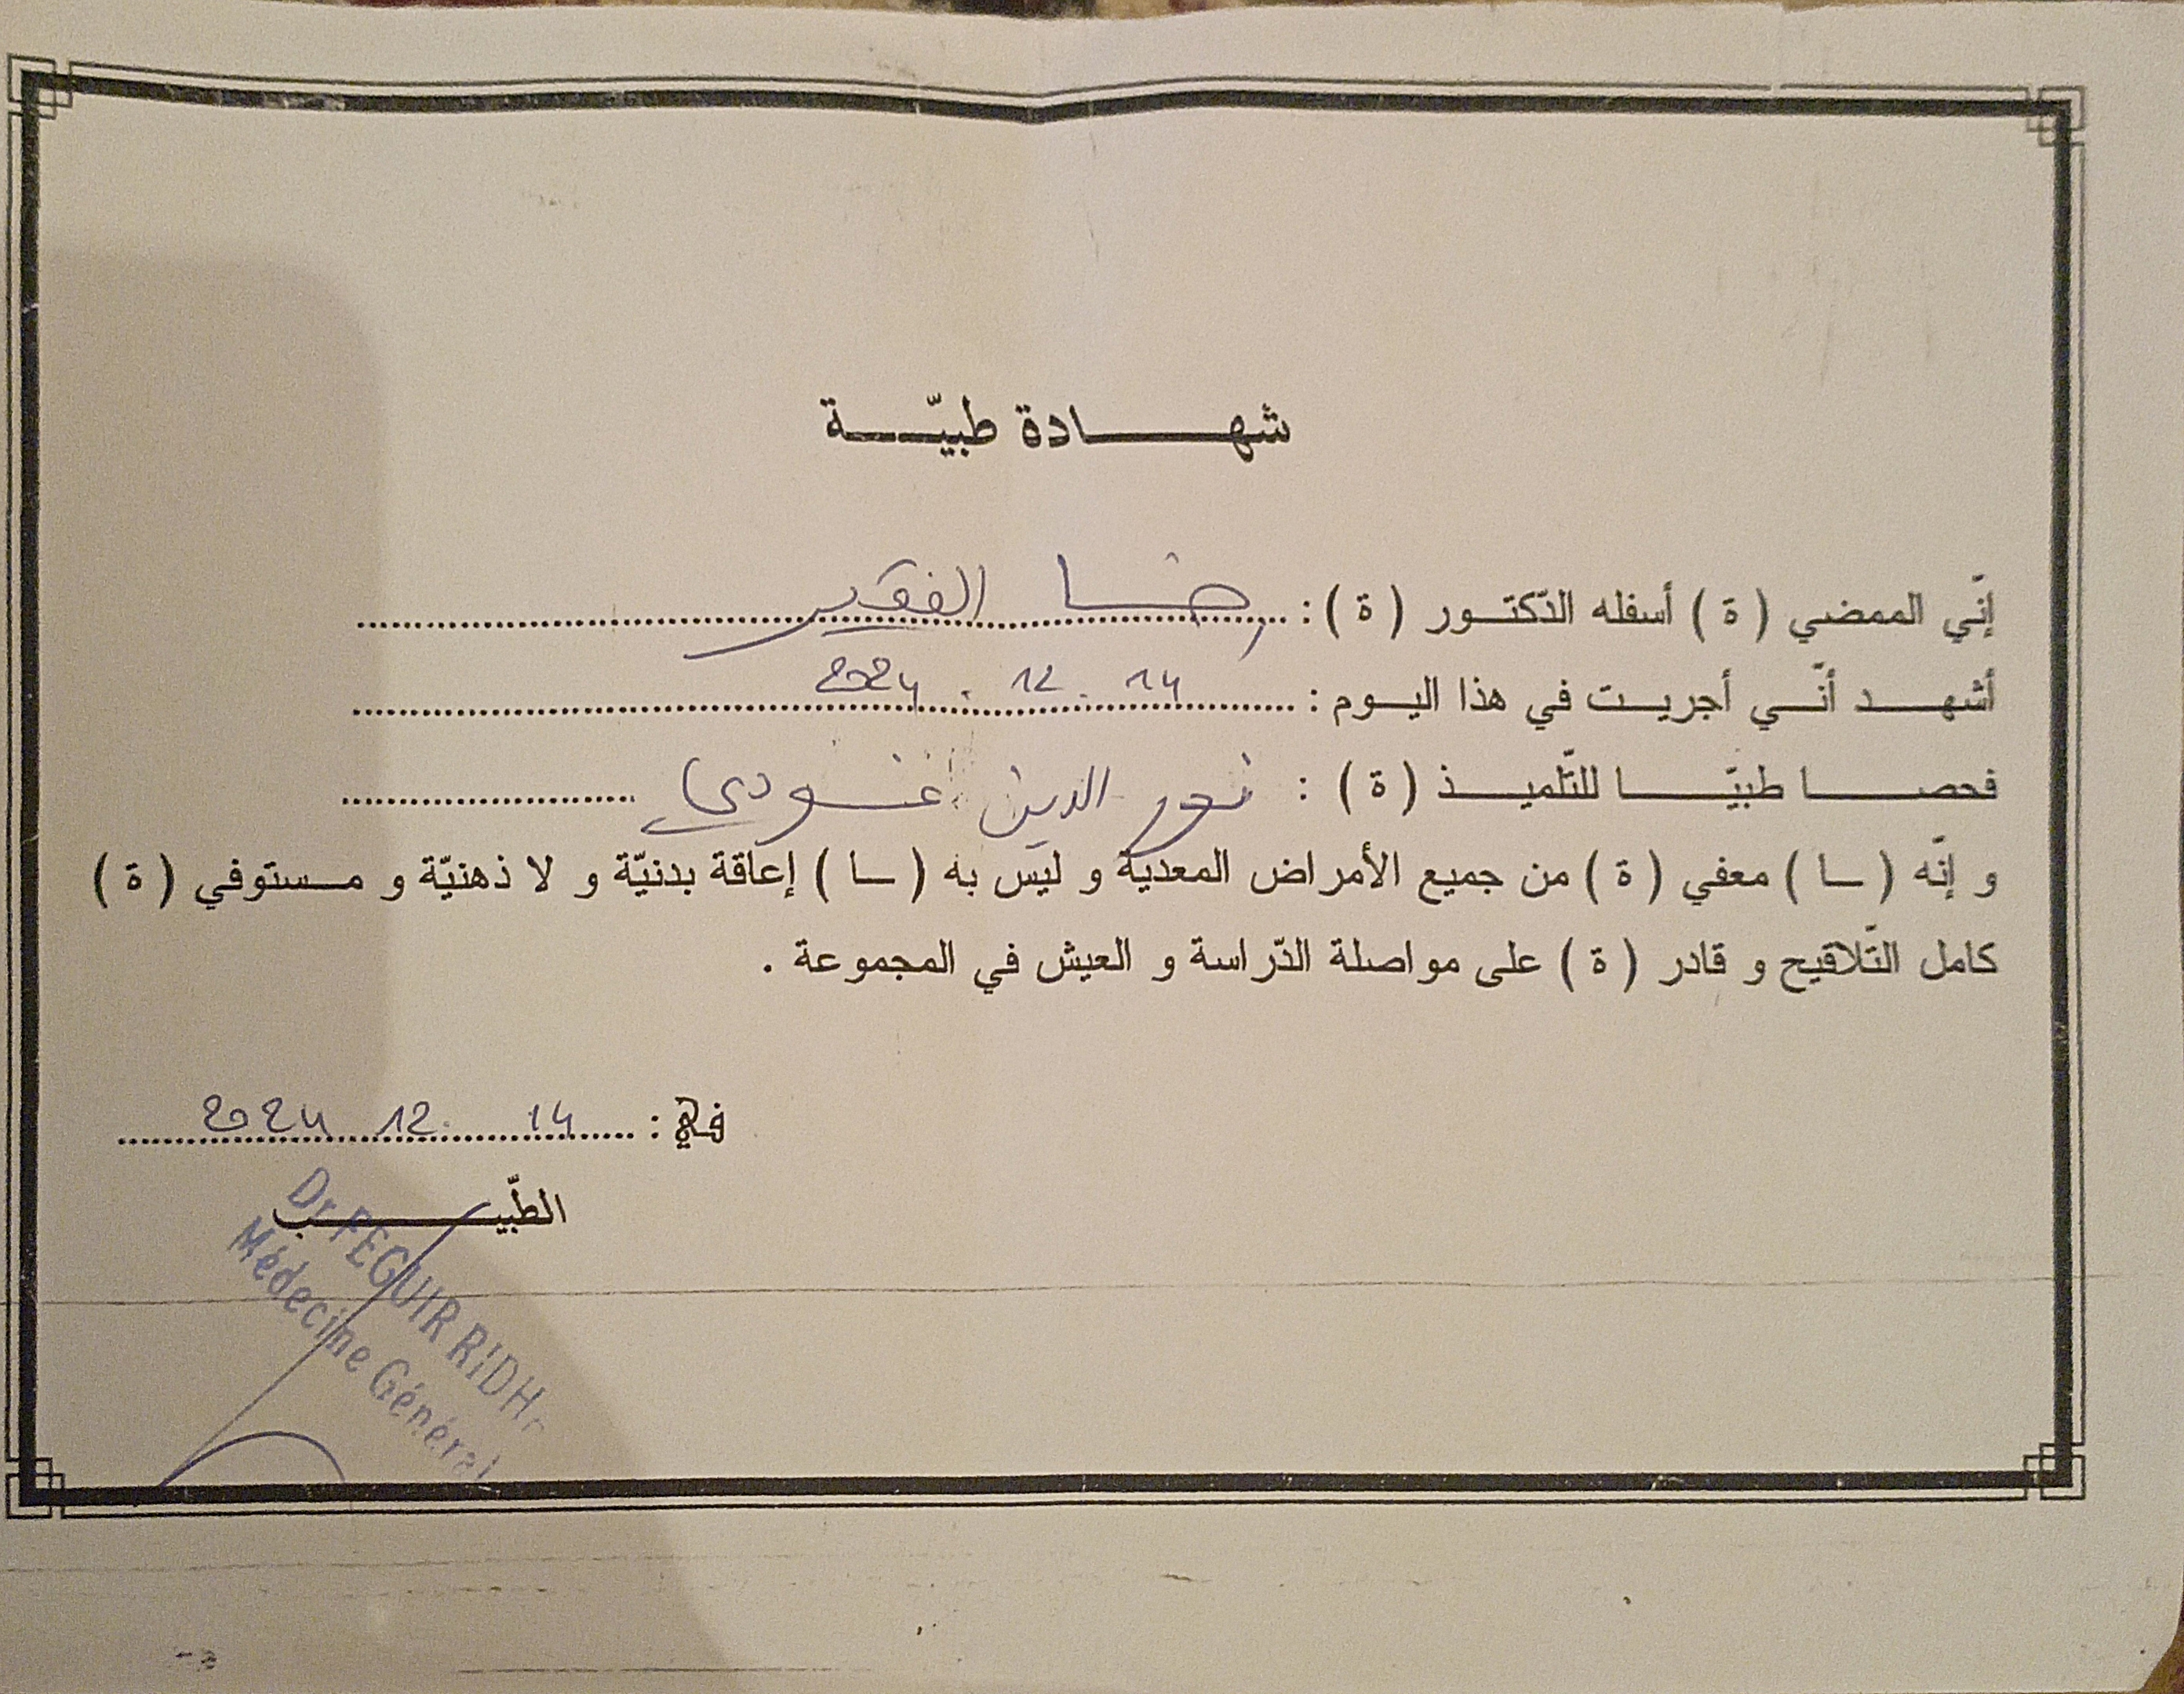 شهادة طبيّة
إنّي الممضي ( ة ) أسفله الدّكتور ( ة ) : رضا الفقير
أشهد أنّي أجريت في هذا اليوم : 14 . 12 . 2024
فحصا طبيّا للتّلميذ ( ة ) : نور الدين
و إنّه ( ـا ) معفي ( ة ) من جميع الأمراض المعدية و ليس به ( ـا ) إعاقة بدنيّة و لا ذهنيّة و مستوفي ( ة )
كامل التّلاقيح و قادر ( ة ) على مواصلة الدّراسة و العيش في المجموعة .
في : 14 12 2024
الطّبيب
Dr FEGUIR RIDH
Médecine Général